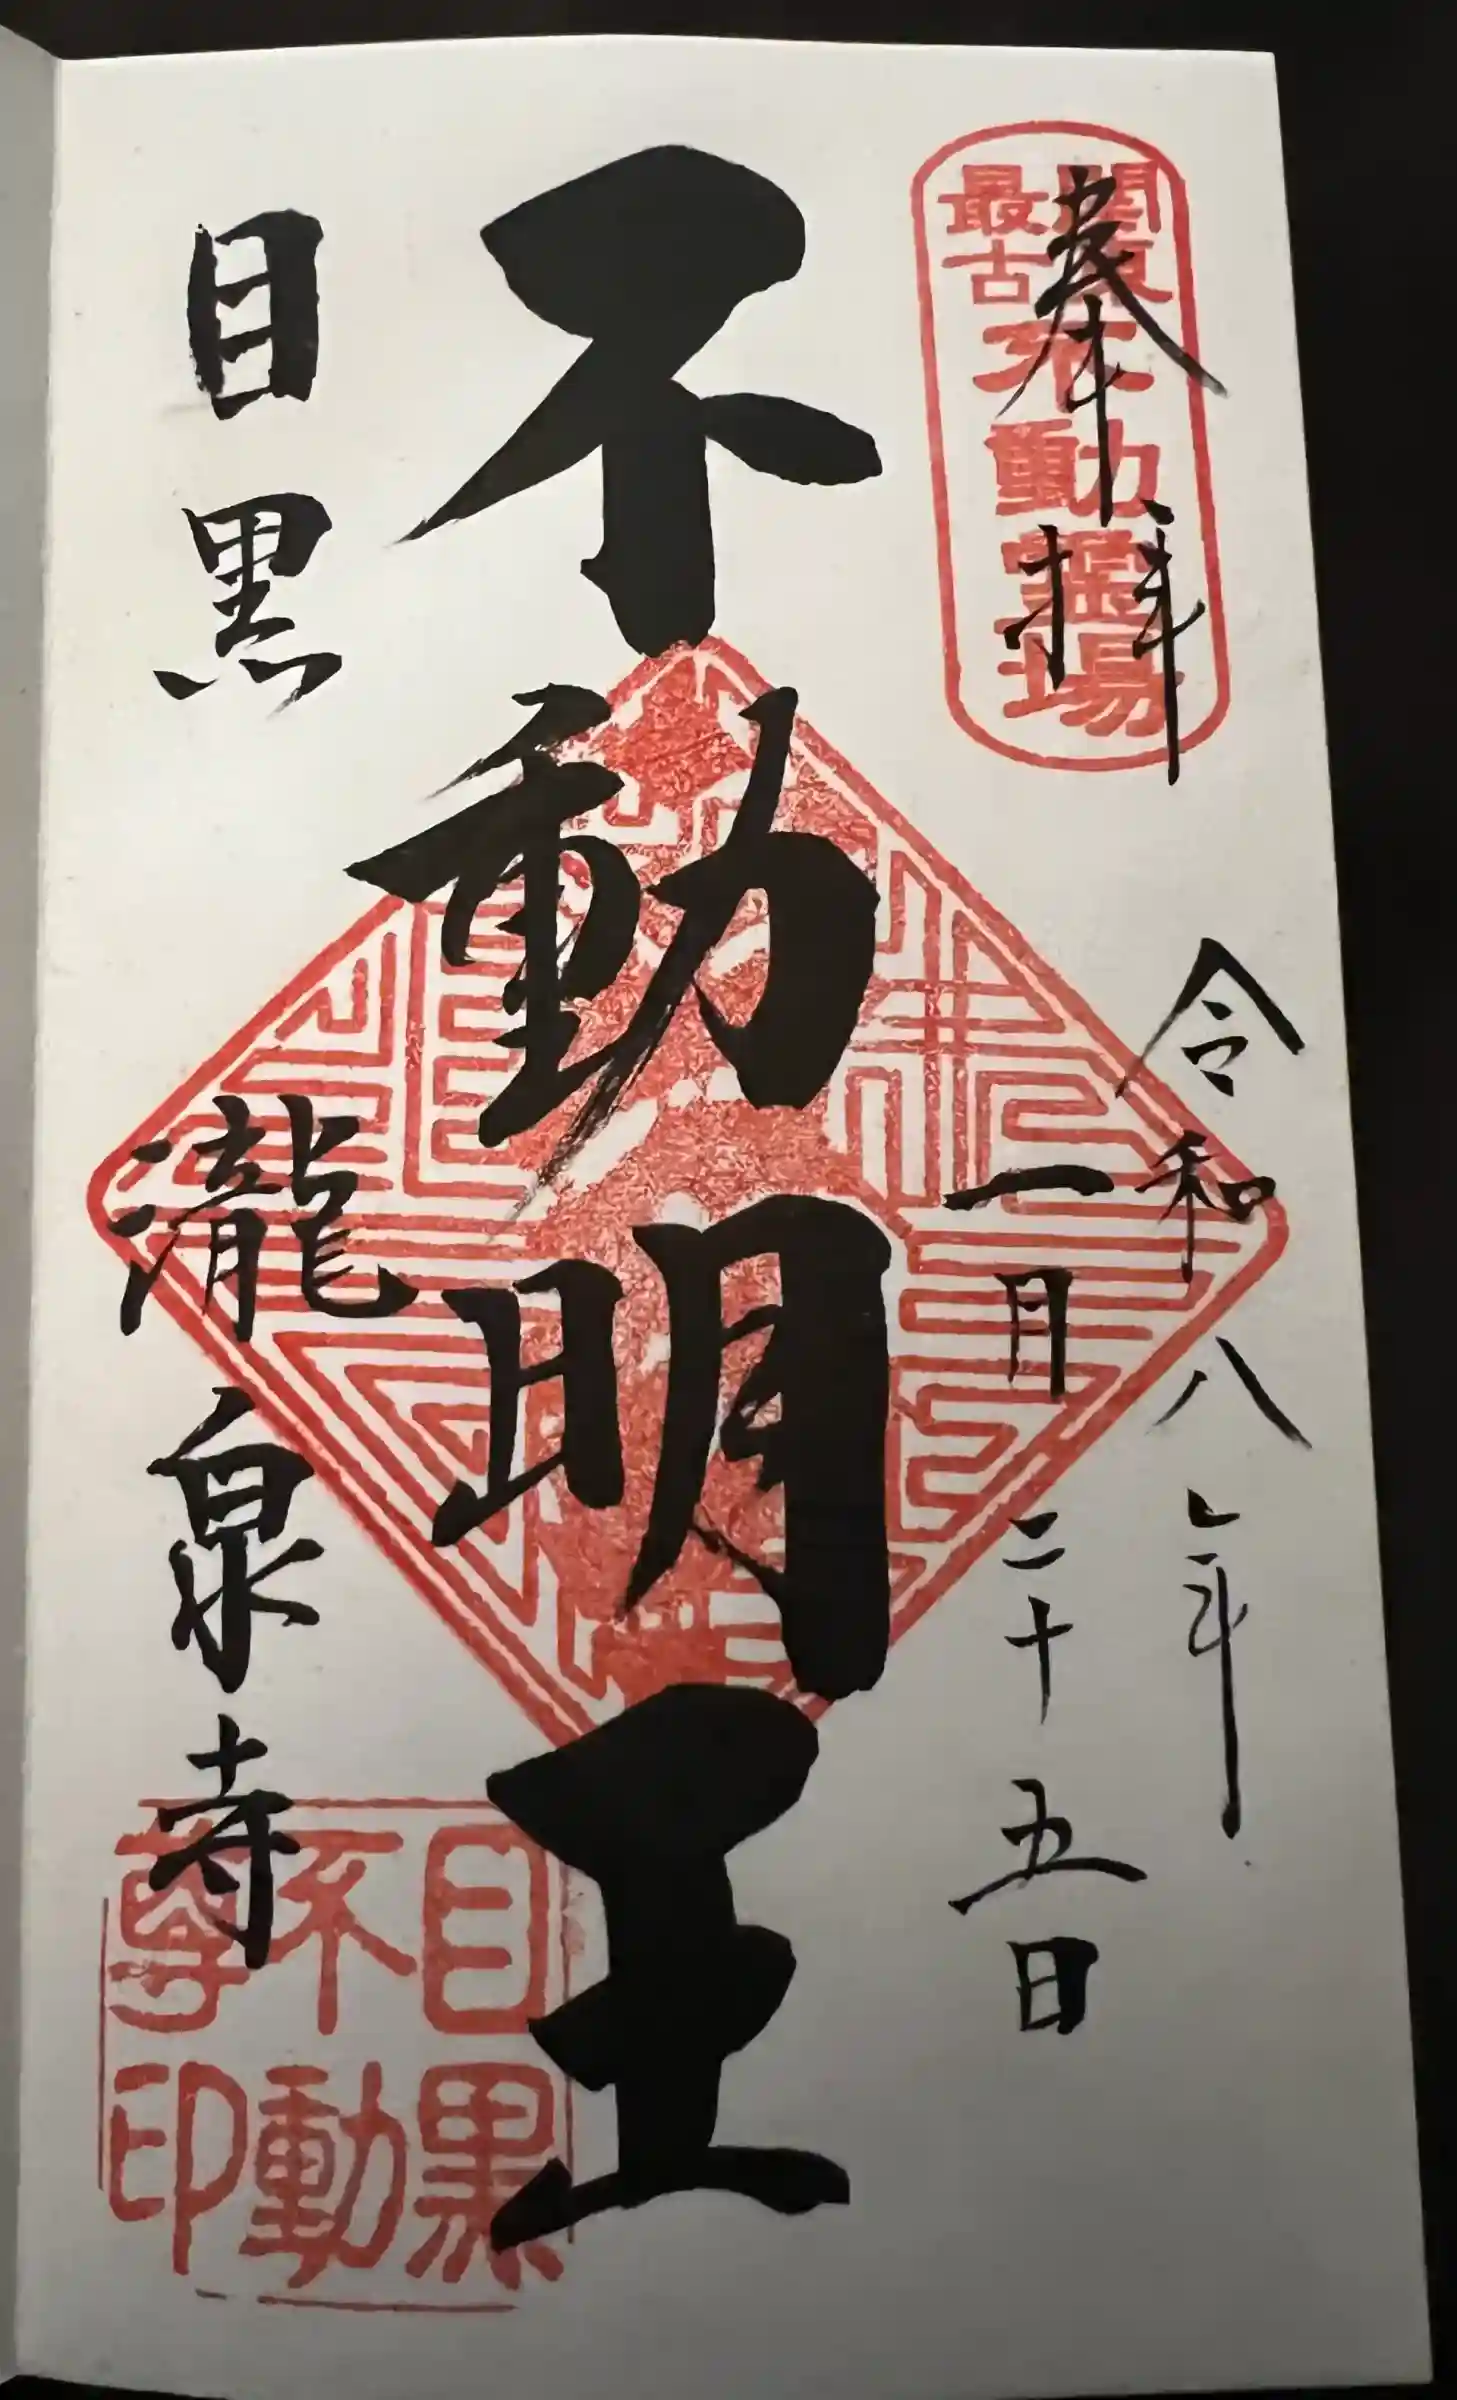 奉拝
関東
最古
不動霊場
令和八年
一月二十五日
不動明王
目黒
瀧泉寺
目黒
不動
尊印